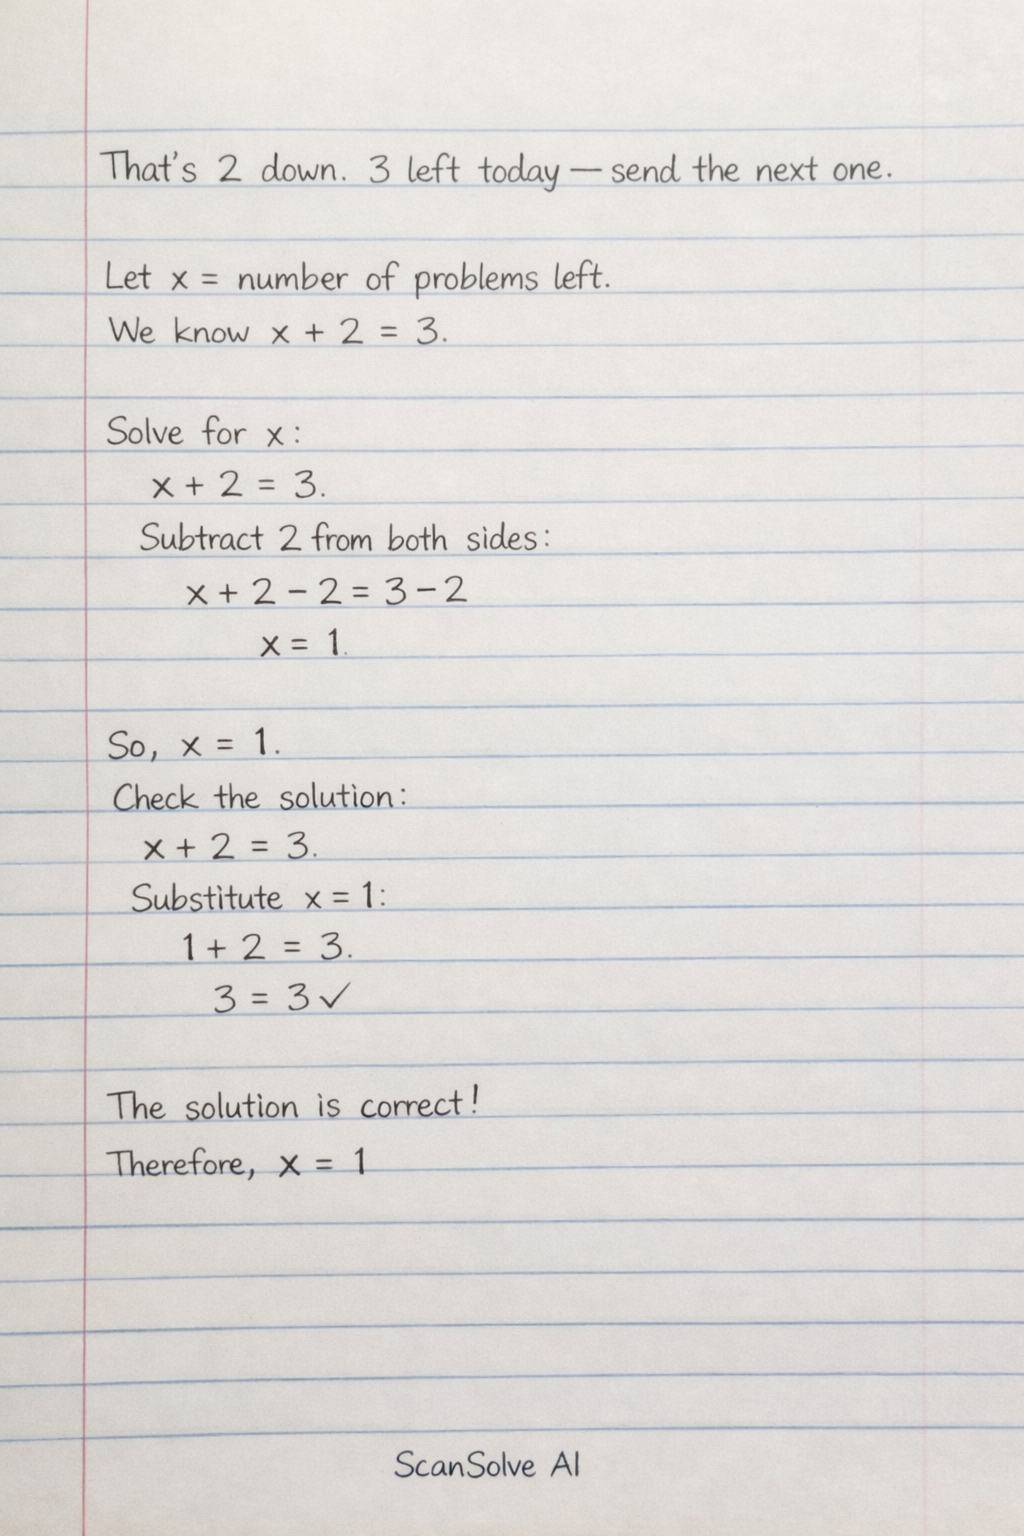 That's 2 down. 3 left today — send the next one.
Let x = number of problems left.
We know x + 2 = 3.
Solve for x:
x + 2 = 3.
Subtract 2 from both sides:
x + 2 - 2 = 3 - 2
x = 1.
So, x = 1.
Check the solution:
x + 2 = 3.
Substitute x = 1:
1 + 2 = 3.
3 = 3 ✓
The solution is correct!
Therefore, x = 1
ScanSolve AI